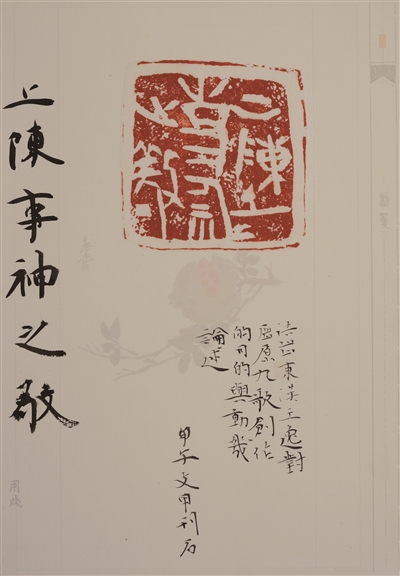 上陳事神之敬
上陳事神之敬
語出東漢王逸對
屈原九歌創作
的目的與動機
論述
甲午文甲刊石